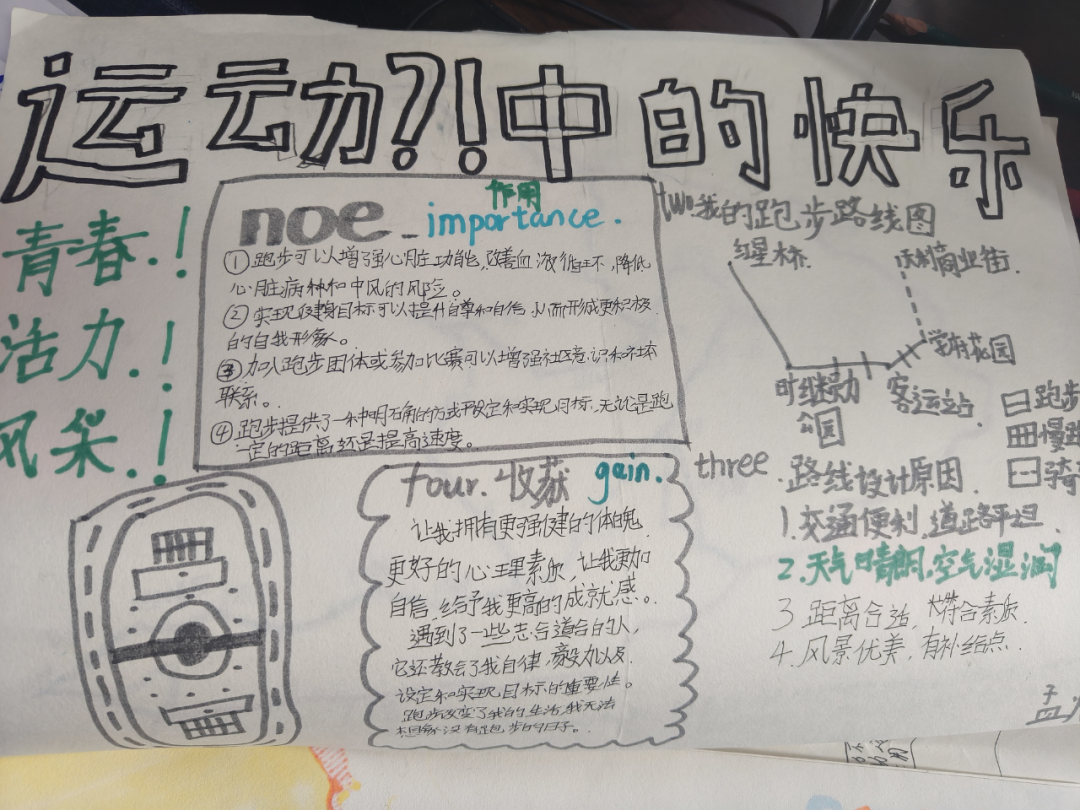 运动?!中的快乐
青春.!
活力.!
风采.!
noe - 作用 importance.
①跑步可以增强心脏功能,改善血液循环,降低
心脏病和中风的风险。
②实现健身目标可以提升自尊和自信,从而形成更积极
的自我形象。
③加入跑步团体或参加比赛可以增强社区意识和社交
联系。
④跑步提供了一种明确的方式于设定和实现目标,无论是跑
一定的距离还是提高速度。
two.我的跑步路线图
红星桥.
商业街.
学府花园
时继勋
公园
客运站
跑步
慢
骑
three
.路线设计原因.
1.交通便利,道路平坦.
2.天气晴朗.空气湿润
3.距离合适,符合素质.
4.风景优美,有补给点.
four.收获 gain.
让我拥有更强健的体魄
更好的心理素质,让我更加
自信.给予我更高的成就感。
遇到了一些志合道合的人,
它还教会了我自律,毅力以及
设定和实现目标的重要性。
跑步改变了我的生活,我无法
想象没有跑步的日子。
孟